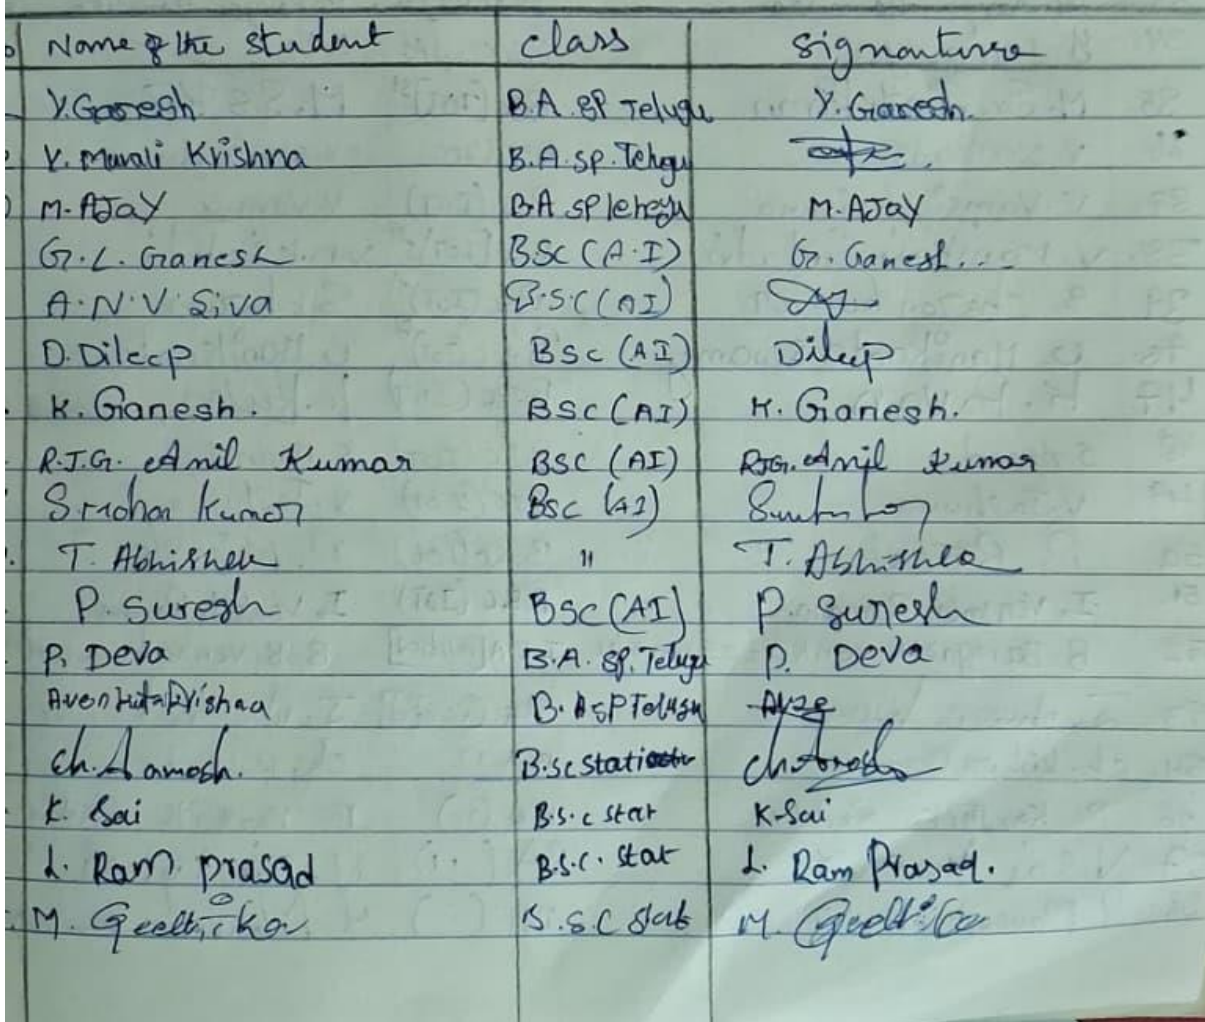 Name of the student class signanture
Y.Ganesh B.A. SP Telugu Y.Ganesh.
V. Murali Krishna B.A.sp.Telugu
M.AJAY B.A SP Telegu M.AJAY
G.L. Ganesh BSC (A.I) G. Ganesh...
A.N.V.Siva B.S.C (AI)
D.Dileep BSC (AI) Dileep
K.Ganesh. BSC (AI) K.Ganesh.
R.J.G. Anil Kumar BSC (AI) RJG.Anil Kumar
Kumar BSC (AI)
T. Abhishek " T. Abhishek
P. Suresh BSC (AI) P. Suresh
P. Deva B.A. SP. Telugu P. Deva
AvenkataKrishna B.A SP Telugu
Ch. B.sc
K. Sai B.S.C stat K-Sai
L. Ram prasad B.S.C. stat L. Ram Prasad.
M. Geethika B.S.C stats M. Geethika